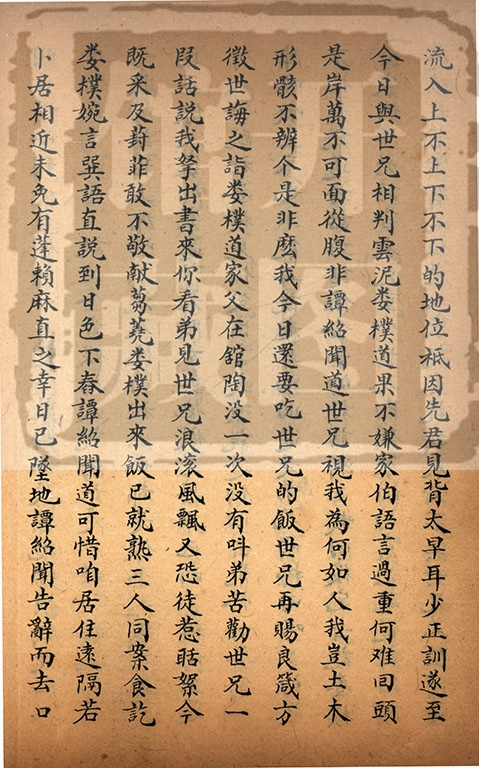 流入上不上下不下的地位祇因先君見背太早耳少正訓遂至
今日與世兄相判雲泥娄樸道果不嫌家伯語言過重何难回頭
是岸萬不可面從腹非譚紹聞道世兄視我為何如人我豈土木
形骸不辨个是非麽我今日還要吃世兄的飯世兄再賜良箴方
徵世誨之詣娄樸道家父在舘陶没一次没有呌弟苦勸世兄一
叚話説我拏出書來你看弟見世兄浪滚風飄又恐徒惹聒絮今
既采及葑菲敢不敬献蒭蕘娄樸出來飯已就熟三人同案食訖
娄樸婉言巽語直説到日色下舂譚紹聞道可惜咱居住遠隔若
卜居相近未免有蓬賴麻直之幸日已墜地譚紹聞告辭而去口